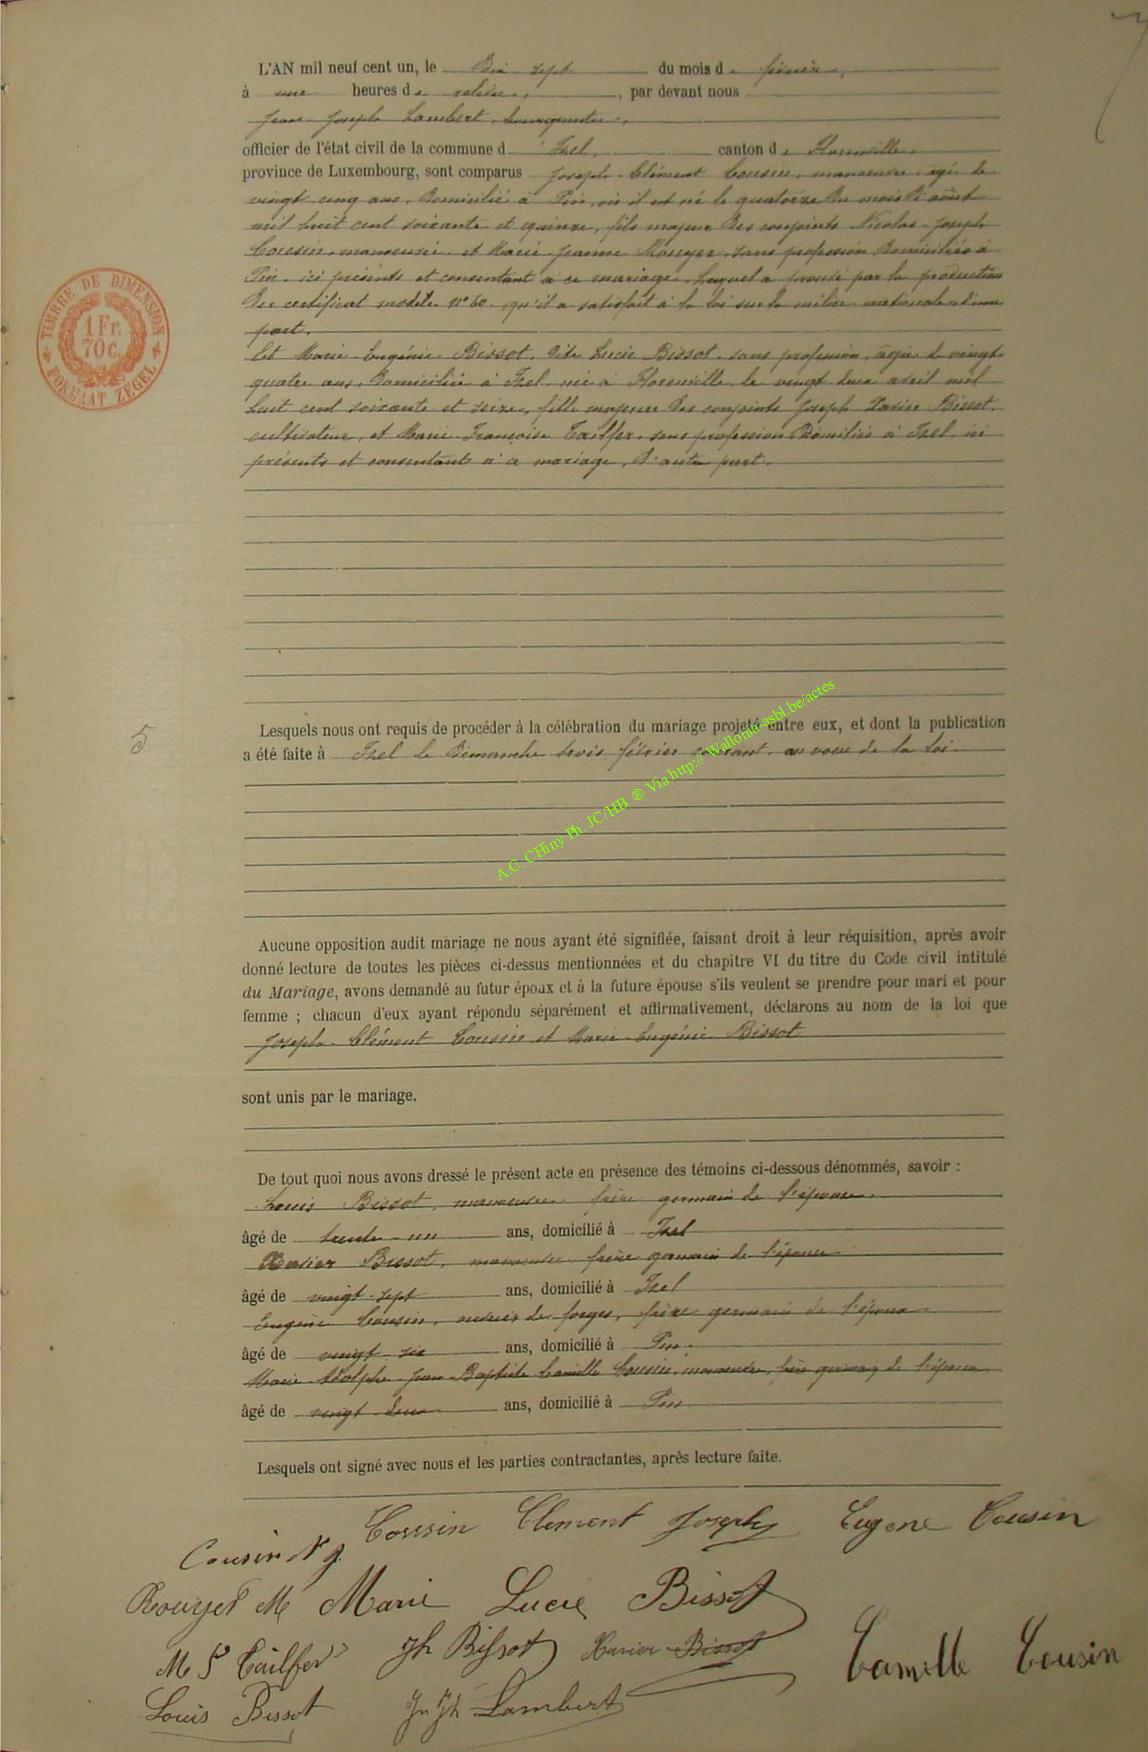 L'AN mil neuf cent un, le Dix sept du mois de février,
à une heures de relevée, par devant nous
Jean-Joseph Lambert, bourgmestre,
officier de l'état civil de la commune d'Izel, canton de Florenville,
province de Luxembourg, sont comparus Joseph-Clément Cousin, manoeuvre, âgé de
vingt cinq ans, domicilié à Pin, où il est né le quatorze du mois d'août
mil huit cent soixante et quinze, fils majeur des conjoints Nicolas-Joseph
Cousin, manoeuvre et Marie-Jeanne Rouyer, sans profession domiciliés à
Pin, ici présents et consentant à ce mariage, lequel a prouvé par la production
du certificat modèle n° 60 qu'il a satisfait à la loi sur la milice nationale d'une
part.
Et Marie-Eugénie Bissot, dite Lucie Bissot, sans profession, âgée de vingt
quatre ans, domiciliée à Izel, née à Florenville, le vingt deux avril mil
huit cent soixante et seize, fille majeure des conjoints Joseph Xavier Bissot,
cultivateur, et Marie-Françoise Tailfer, sans profession domiciliés à Izel, ici
présents et consentant à ce mariage, d'autre part.
TIMBRE DE DIMENSION
1 Fr.
70 c.
FORMAAT ZEGEL
5
Lesquels nous ont requis de procéder à la célébration du mariage projeté entre eux, et dont la publication
a été faite à Izel le dimanche trois février courant, au voeu de la loi.
A.C. CHiny Ph. JC/HB ® Via http:// Wallonia-asbl.be/actes
Aucune opposition audit mariage ne nous ayant été signifiée, faisant droit à leur réquisition, après avoir
donné lecture de toutes les pièces ci-dessus mentionnées et du chapitre VI du titre du Code civil intitulé
du Mariage, avons demandé au futur époux et à la future épouse s'ils veulent se prendre pour mari et pour
femme ; chacun d'eux ayant répondu séparément et affirmativement, déclarons au nom de la loi que
Joseph-Clément Cousin et Marie-Eugénie Bissot
sont unis par le mariage.
De tout quoi nous avons dressé le présent acte en présence des témoins ci-dessous dénommés, savoir :
Louis Bissot, manoeuvre, frère germain de l'épouse,
âgé de trente-un ans, domicilié à Izel
Xavier Bissot, manoeuvre, frère germain de l'épouse
âgé de vingt-sept ans, domicilié à Izel
Eugène Cousin, ouvrier de forges, frère germain de l'époux
âgé de vingt six ans, domicilié à Pin.
Marie-Adolphe-Jean-Baptiste Camille Cousin, manoeuvre, frère germain de l'époux
âgé de vingt-deux ans, domicilié à Pin
Lesquels ont signé avec nous et les parties contractantes, après lecture faite.
Cousin Clément Joseph Eugene Cousin
Cousin N J
Rouyer M Marie Lucie Bissot
M F Tailfer Jh Bissot Xavier Bissot Camille Cousin
Louis Bissot Jn Jh Lambert